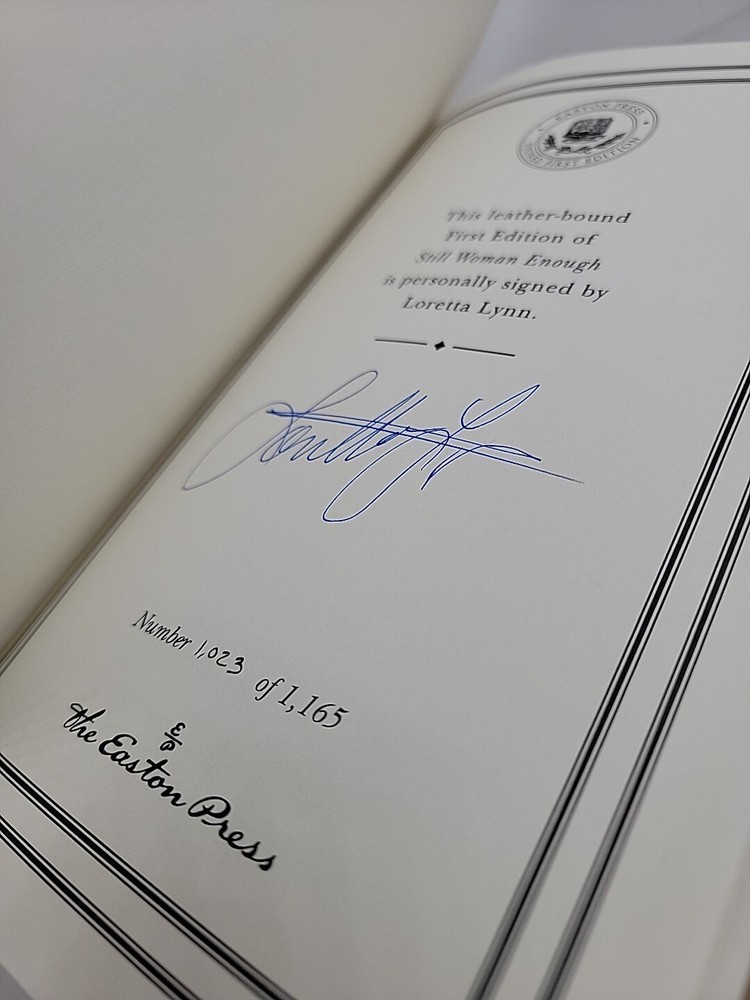 EASTON PRESS
FIRST EDITION
This leather-bound
First Edition of
Still Woman Enough
is personally signed by
Loretta Lynn.
Loretta Lynn
Number 1,023 of 1,165
E/P
The Easton Press